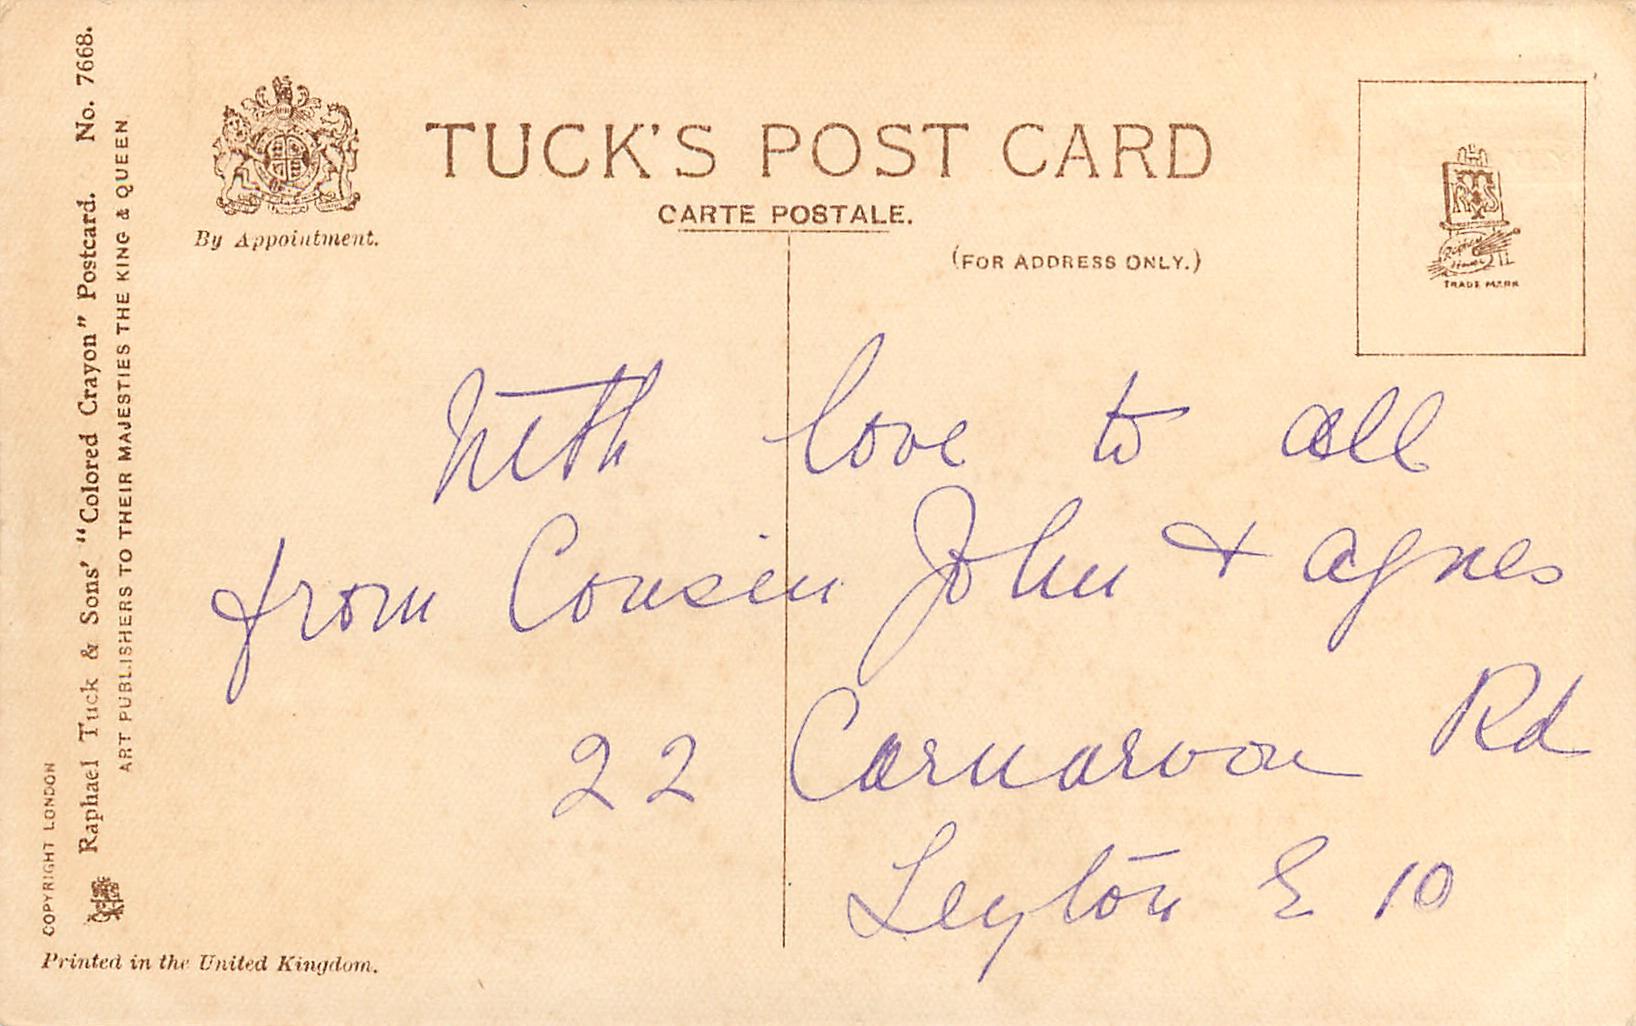 TUCK'S POST CARD
CARTE POSTALE.
By Appointment.
(FOR ADDRESS ONLY.)
TRADE MARK
With love to all
from Cousin John & Agnes
22 Carnarvon Rd
Leyton E 10
COPYRIGHT LONDON
Raphael Tuck & Sons' "Colored Crayon" Postcard. No. 7668.
ART PUBLISHERS TO THEIR MAJESTIES THE KING & QUEEN
Printed in the United Kingdom.